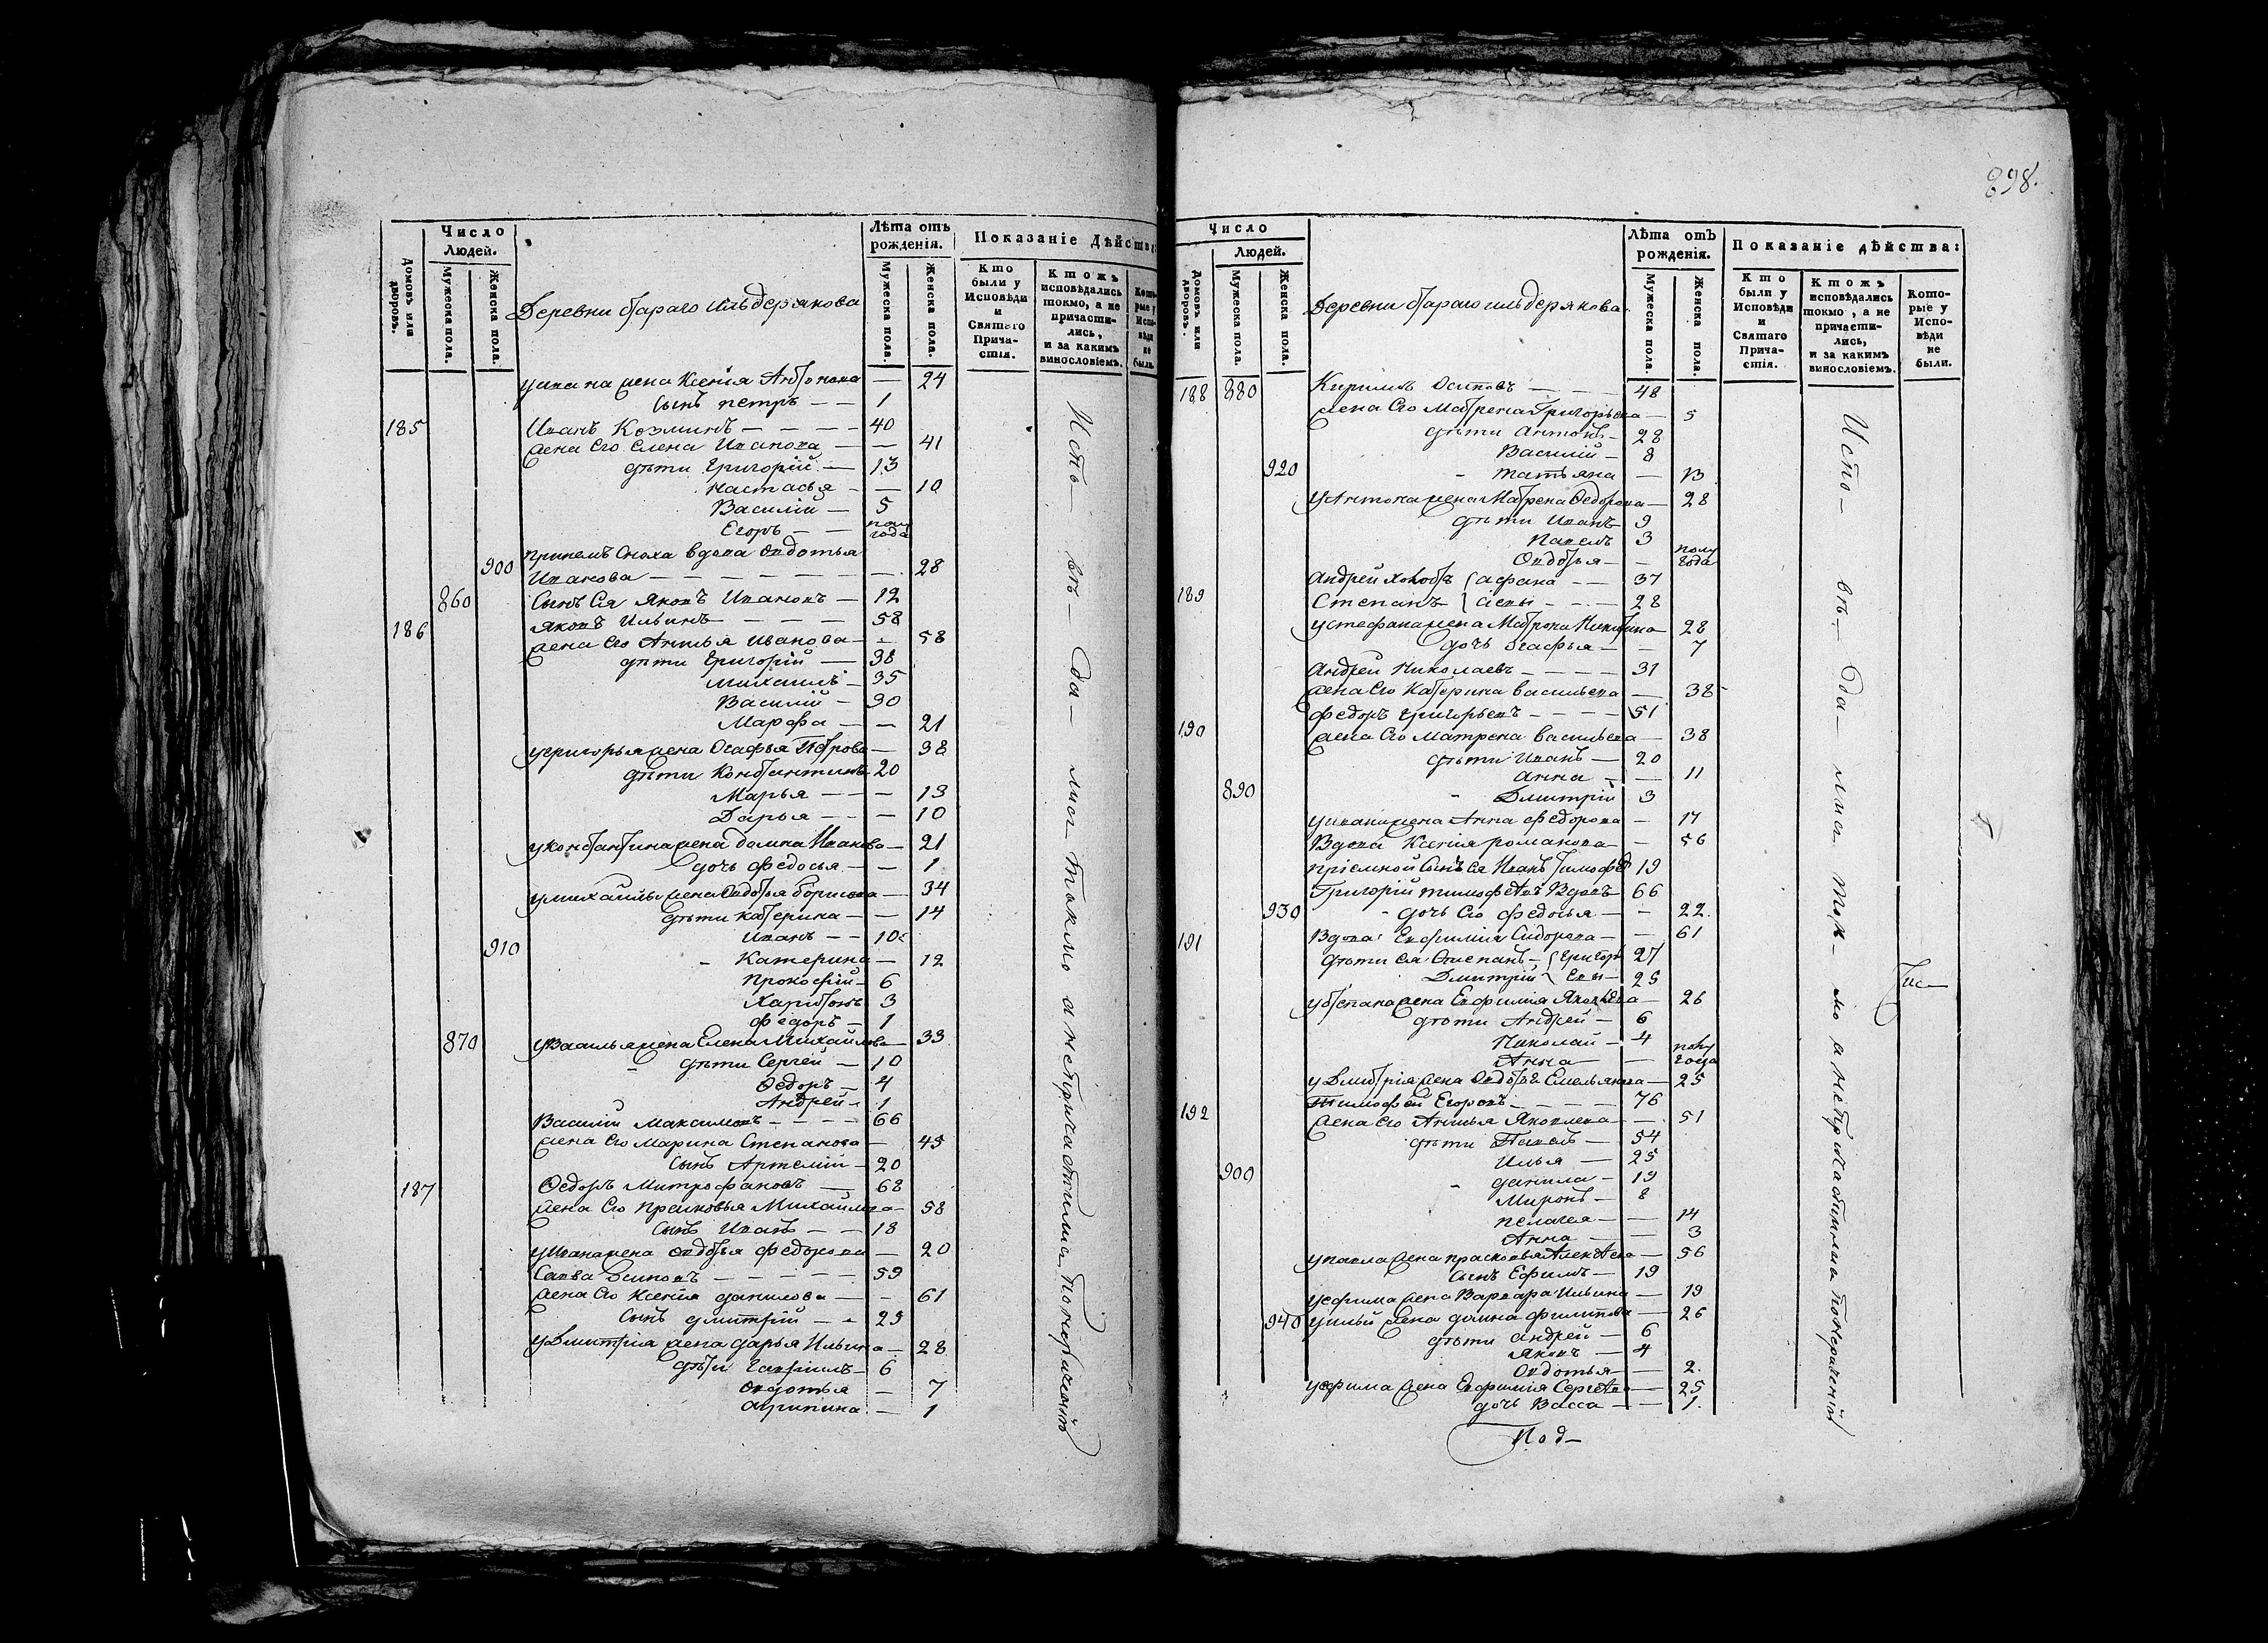 Число
Людей.
Лѣта отъ рожденія.
Показаніе Дѣйства:
Домовъ или дворовъ.
Мужеска пола.
Женска пола.
Деревни Стараго Ильдерякова
Мужеска пола.
Женска пола.
Кто были у Исповѣди и Святаго Причастія.
Ктожъ исповѣдались токмо, а не причастились, и за какимъ винословіемъ.
Кото- рые у Испо- вѣди не были.
у ивана жена Ксения Антонова — 24
Сынъ петръ — — 1
185 Иванъ Козминъ — — — — 40
жена его Елена Иванова — — 41
дѣти Григорій — 13
Настасья — — 10
Василій — 5
Егоръ — — полу года
900 при немъ Сноха вдова Овдотья
Иванова — — — — — — 28
860 Сынъ Ея Яковъ Ивановъ — 12
186 Яковъ Ильинъ — — — — 58
жена его Анисья Иванова — — 58
дѣти Григорій — 38
михаилъ — 35
Василій — 30
Марфа — — 21
у григорья жена Огафья Петрова — 38
дѣти Константинъ 20
Марья — — — 13
Дарья — — — 10
у константина жена домна Иванова — 21
дочь федосья — — 1
у михайлы жена Овдотья борисова — 34
дѣти катерина — — 14
Иванъ — — 10
910 Катерина — 12
прокофій — 6
Харитонъ 3
федоръ — 1
870 у Василья жена Елена Михайлова — 33
дѣти Сергей — 10
Федоръ — 4
Андрей — 1
Василій Максимовъ — — — — 66
жена его Марина Степанова — 45
Сынъ Артемій — 20
187 Федоръ Митрофановъ — 68
жена его прасковья Михайлова — 58
Сынъ Иванъ — — 18
у Ивана жена овдотья федорова — 20
Савва Осиповъ — — — — — 59
жена его Ксения данилова — — 61
Сынъ дмитрій — — 25
у Дмитрія жена дарья Ильина — 28
дѣти Гаврiилъ — 6
овдотья — 7
агрипина — 1
Испо- вѣ- да- лись токмо а непричастились по
898.
Число
Людей.
Лѣта отъ рожденія.
Показаніе дѣйства:
Домовъ или дворовъ.
Мужеска пола.
Женска пола.
Деревни Стараго ильдерякова
Мужеска пола.
Женска пола.
Кто были у Исповѣди и Святаго Причастія.
Ктожъ исповѣдались токмо, а не причастились, и за какимъ винословіемъ.
Кото- рые у Испо- вѣди не были.
188 880 Кирилъ Осиповъ — — — 48
жена его Матрена Григорьева — 5
дѣти антонъ — 28
Василій — 8
920 татьяна — 13
у Антона жена Матрена Федорова — 28
дѣти Иванъ 9
Павелъ 3
Овдотья — — полу года
Андрей { афана — — 37
189 Степанъ } сьевы — — — 28
у стефана жена Матрона Никитина — 28
дочь огафья — — 7
Андрей Николаевъ — — — — 31
жена его Катерина васильева — 38
федоръ григорьевъ — — — — 51
190 жена его матрена васильева — 38
дѣти Иванъ — 20
анна — — 11
890 Дмитрій 3
у ивана жена Анна федорова — 17
Вдова Ксения романова — — 56
пріемной Сынъ ея Иванъ тимофѣ 19
Григорій тимофѣевъ Вдовъ 66
930 дочь его федосья — — 22.
191 Вдова Евфимия Сидорова — — 61
дѣти ея Степанъ — { Григорь 27
Дмитрій { евы — 25
у степана жена Евфимия Яковлева — 26
дѣти Андрей — 6
Николай — 4
Анна — — полу года
у Дмитрія жена Овдотья Емельянова — 25
Тимофей Егоровъ — — — — 76
192 жена его Анисья Яковлева — — 51
дѣти Павелъ — 54
Илья — 25
900 данила — 19
Миронъ — 8
пелагея — — 14
Анна — — 3
у павла жена прасковья Алексѣева — 56
Сынъ Ефимъ — 19
у ефима жена Варвара Ильина — 19
940 у ильи жена домна филипова — 26
дѣти андрей — 6
Яковъ — 4
Овдотья — — 2.
у ефима жена Евфимия Сергѣева — 25
дочь Васса — — 1.
Испо- вѣ- да- лись ток- мо а непричастились по
Под-